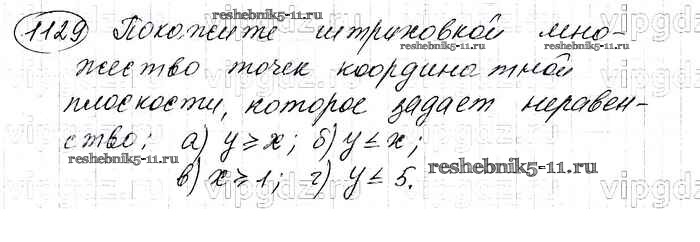 1129 Покажите штриховкой мно-
жество точек координатной
плоскости, которое задает неравен-
ство: а) y ⩾ x; б) y ⩽ x;
в) x ⩾ 1; г) y ⩽ 5.
reshebnik5-11.ru
reshebnik5-11.ru
reshebnik5-11.ru
reshebnik5-11.ru
vipgdz.ru
vipgdz.ru
vipgdz.ru